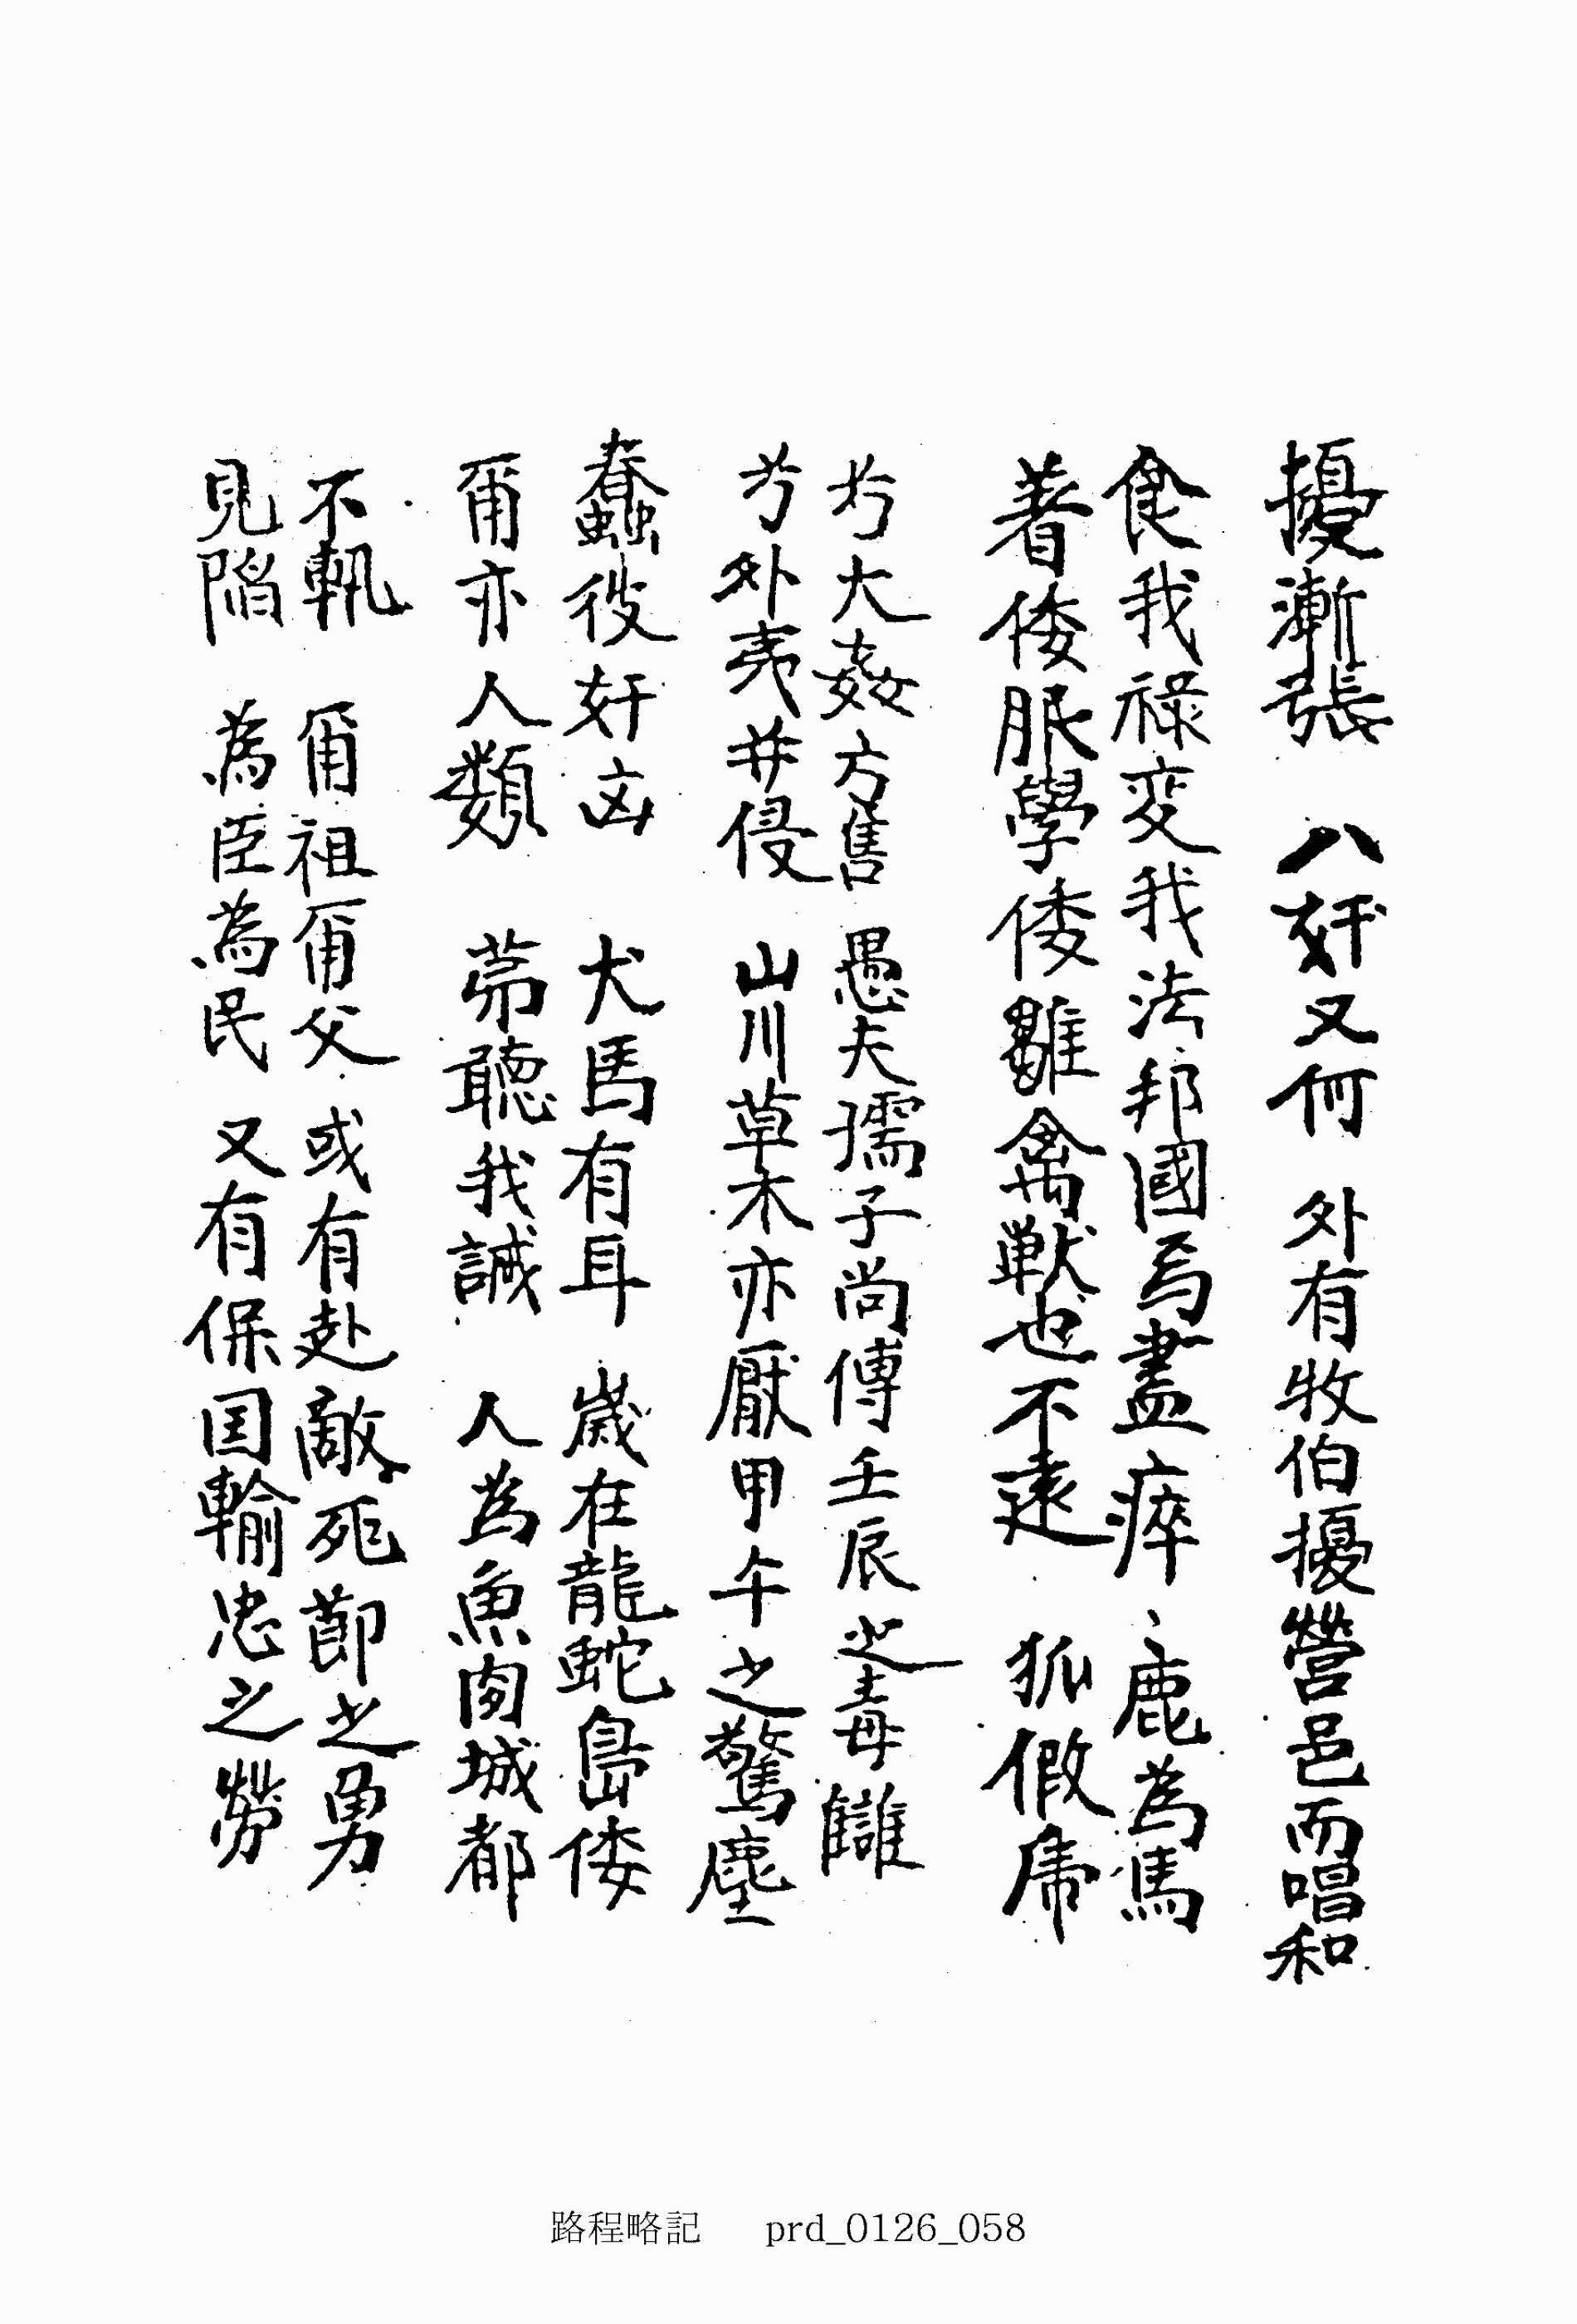 擾漸張 八奸又何 外有牧伯擾營邑而唱和
食我祿変我法邦國焉盡瘁 鹿為馬
着倭服學倭倭雛禽獣也不遠 狐假虎
於大姦方售 愚夫孺子尚傳壬辰之毒讎
於外夷并侵 山川草木亦厭甲午之驚塵
蠢彼奸凶 犬馬有耳 歲在龍蛇島倭
爾亦人類 第聽我誡 人為魚肉城都
不軌 爾祖爾父 或有赴敵死節之勇
見陷 為臣為民 又有保国輸忠之勞
路程略記 prd_0126_058